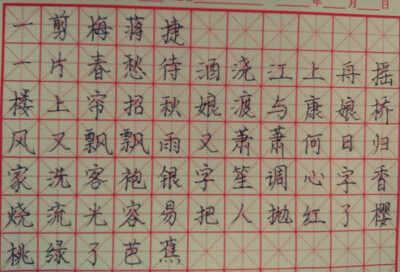 年 月 日
一剪梅蒋捷
一片春愁待酒浇江上舟摇
楼上帘招秋娘渡与康娘桥
风又飘飘雨又萧萧何日归
家洗客袍银字笙调心字香
烧流光容易把人抛红了樱
桃绿了芭蕉